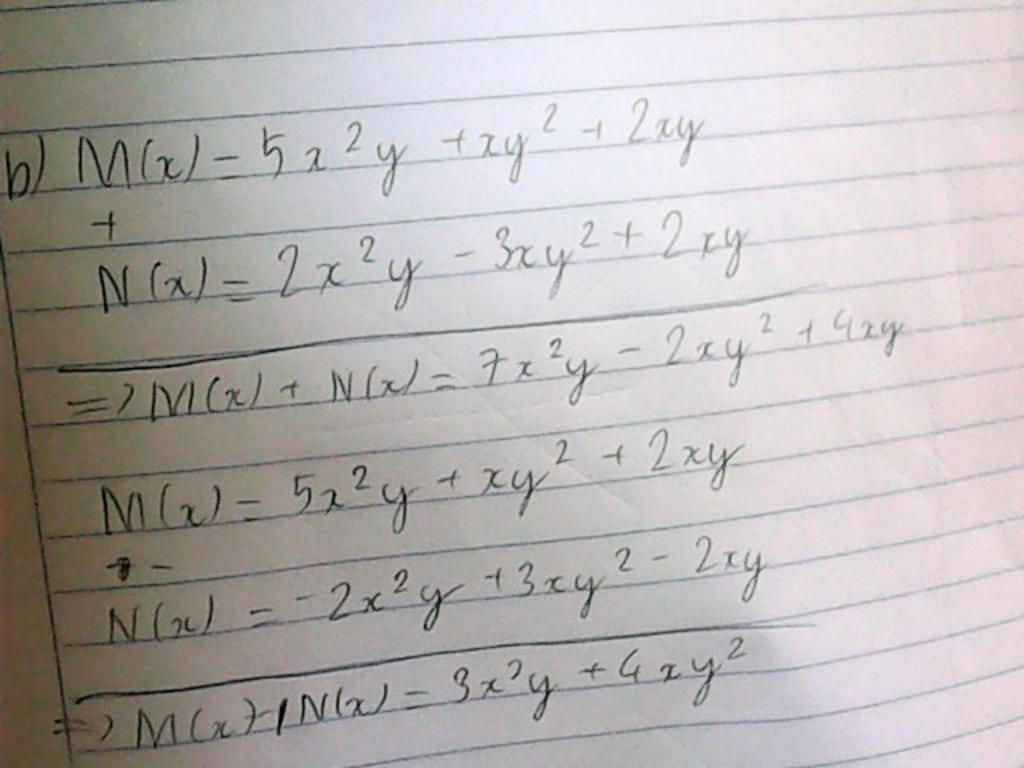 b) M(x) = 5x²y + xy² + 2xy
+
N(x) = 2x²y - 3xy² + 2xy
=> M(x) + N(x) = 7x²y - 2xy² + 4xy
M(x) = 5x²y + xy² + 2xy
-
N(x) = -2x²y + 3xy² - 2xy
=> M(x) - N(x) = 3x²y + 4xy²